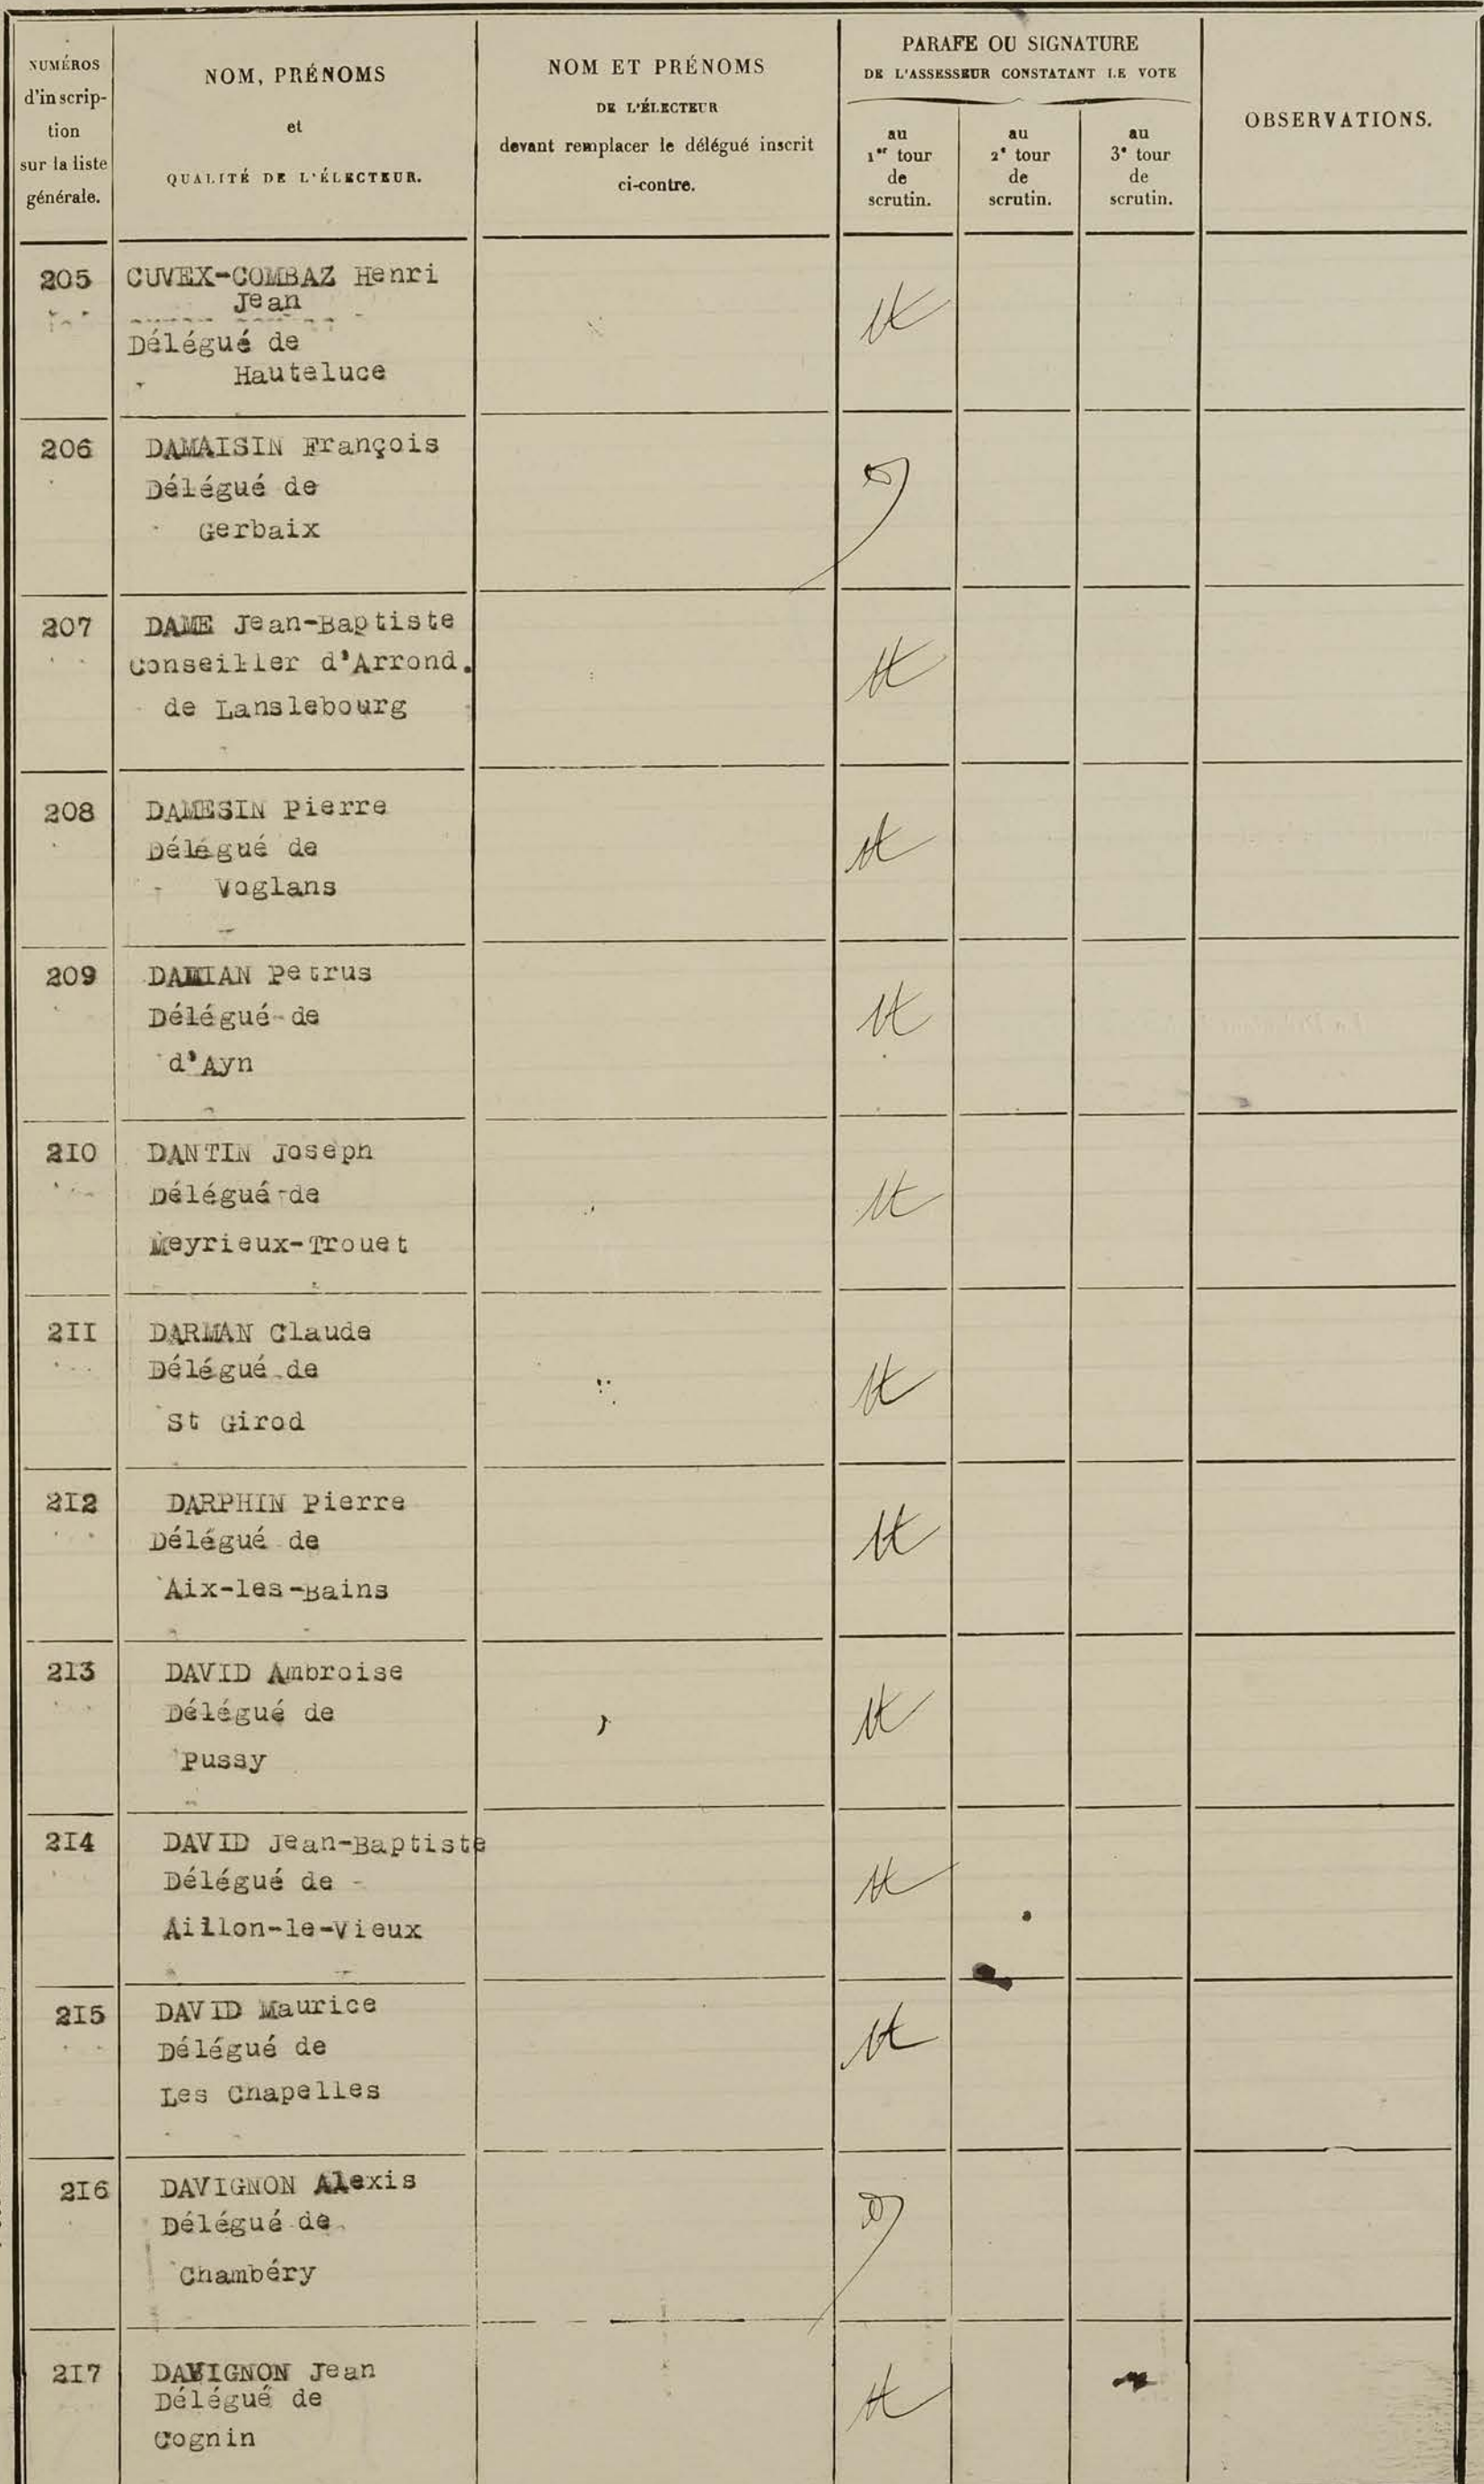 NUMÉROS
d'inscrip-
tion
sur la liste
générale.
NOM, PRÉNOMS
et
QUALITÉ DE L'ÉLECTEUR.
NOM ET PRÉNOMS
DE L'ÉLECTEUR
devant remplacer le délégué inscrit
ci-contre.
PARAFE OU SIGNATURE
DE L'ASSESSEUR CONSTATANT LE VOTE
au
1er tour
de
scrutin.
au
2e tour
de
scrutin.
au
3e tour
de
scrutin.
OBSERVATIONS.
205 CUVEX-COMBAZ Henri
Jean
Délégué de
Hauteluce
206 DAMAISIN François
Délégué de
Gerbaix
207 DAME Jean-Baptiste
Conseiller d'Arrond.
de Lanslebourg
208 DAMESIN Pierre
Délégué de
Voglans
209 DAMIAN Petrus
Délégué de
d'Ayn
2I0 DANTIN Joseph
Délégué de
Meyrieux-Trouet
2II DARMAN Claude
Délégué de
St Girod
2I2 DARPHIN Pierre
Délégué de
Aix-les-Bains
2I3 DAVID Ambroise
Délégué de
Pussy
2I4 DAVID Jean-Baptiste
Délégué de
Aillon-le-Vieux
2I5 DAVID Maurice
Délégué de
Les Chapelles
2I6 DAVIGNON Alexis
Délégué de
Chambéry
2I7 DAVIGNON Jean
Délégué de
Cognin